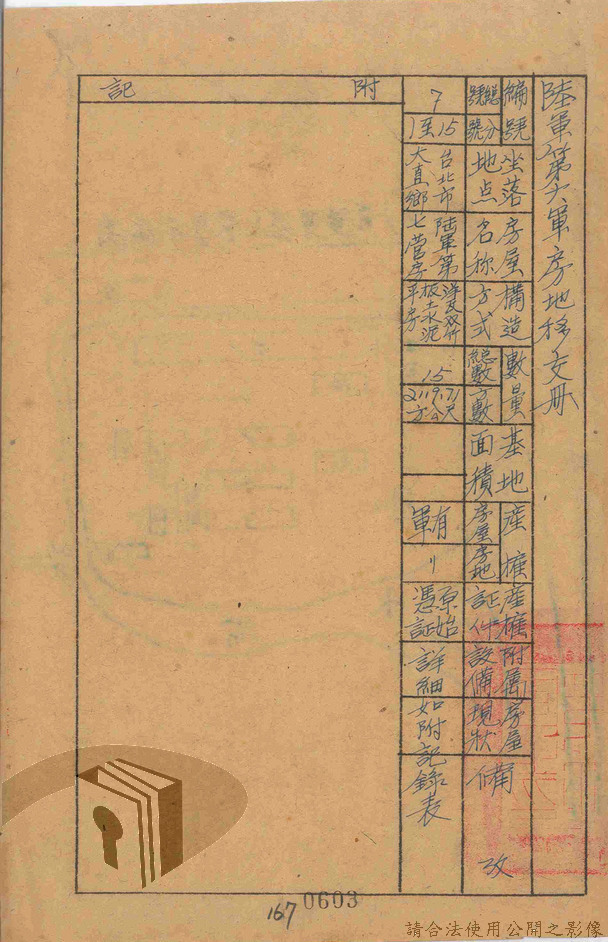 陸軍第六軍房地移交冊
編號 總號 分號
坐落地点
房屋名称
構造方式
數量 總數 方數
基地面積
產權 房屋 房地
產權証件
附屬設備
房屋現狀
備攷
7
1至15
台北市大直鄉
陸軍第七營房
洋瓦双竹板土水泥平房
15
2119.71方公尺
軍有
〃
原始憑証
詳細如附記錄表
附記
167
0603
請合法使用公開之影像